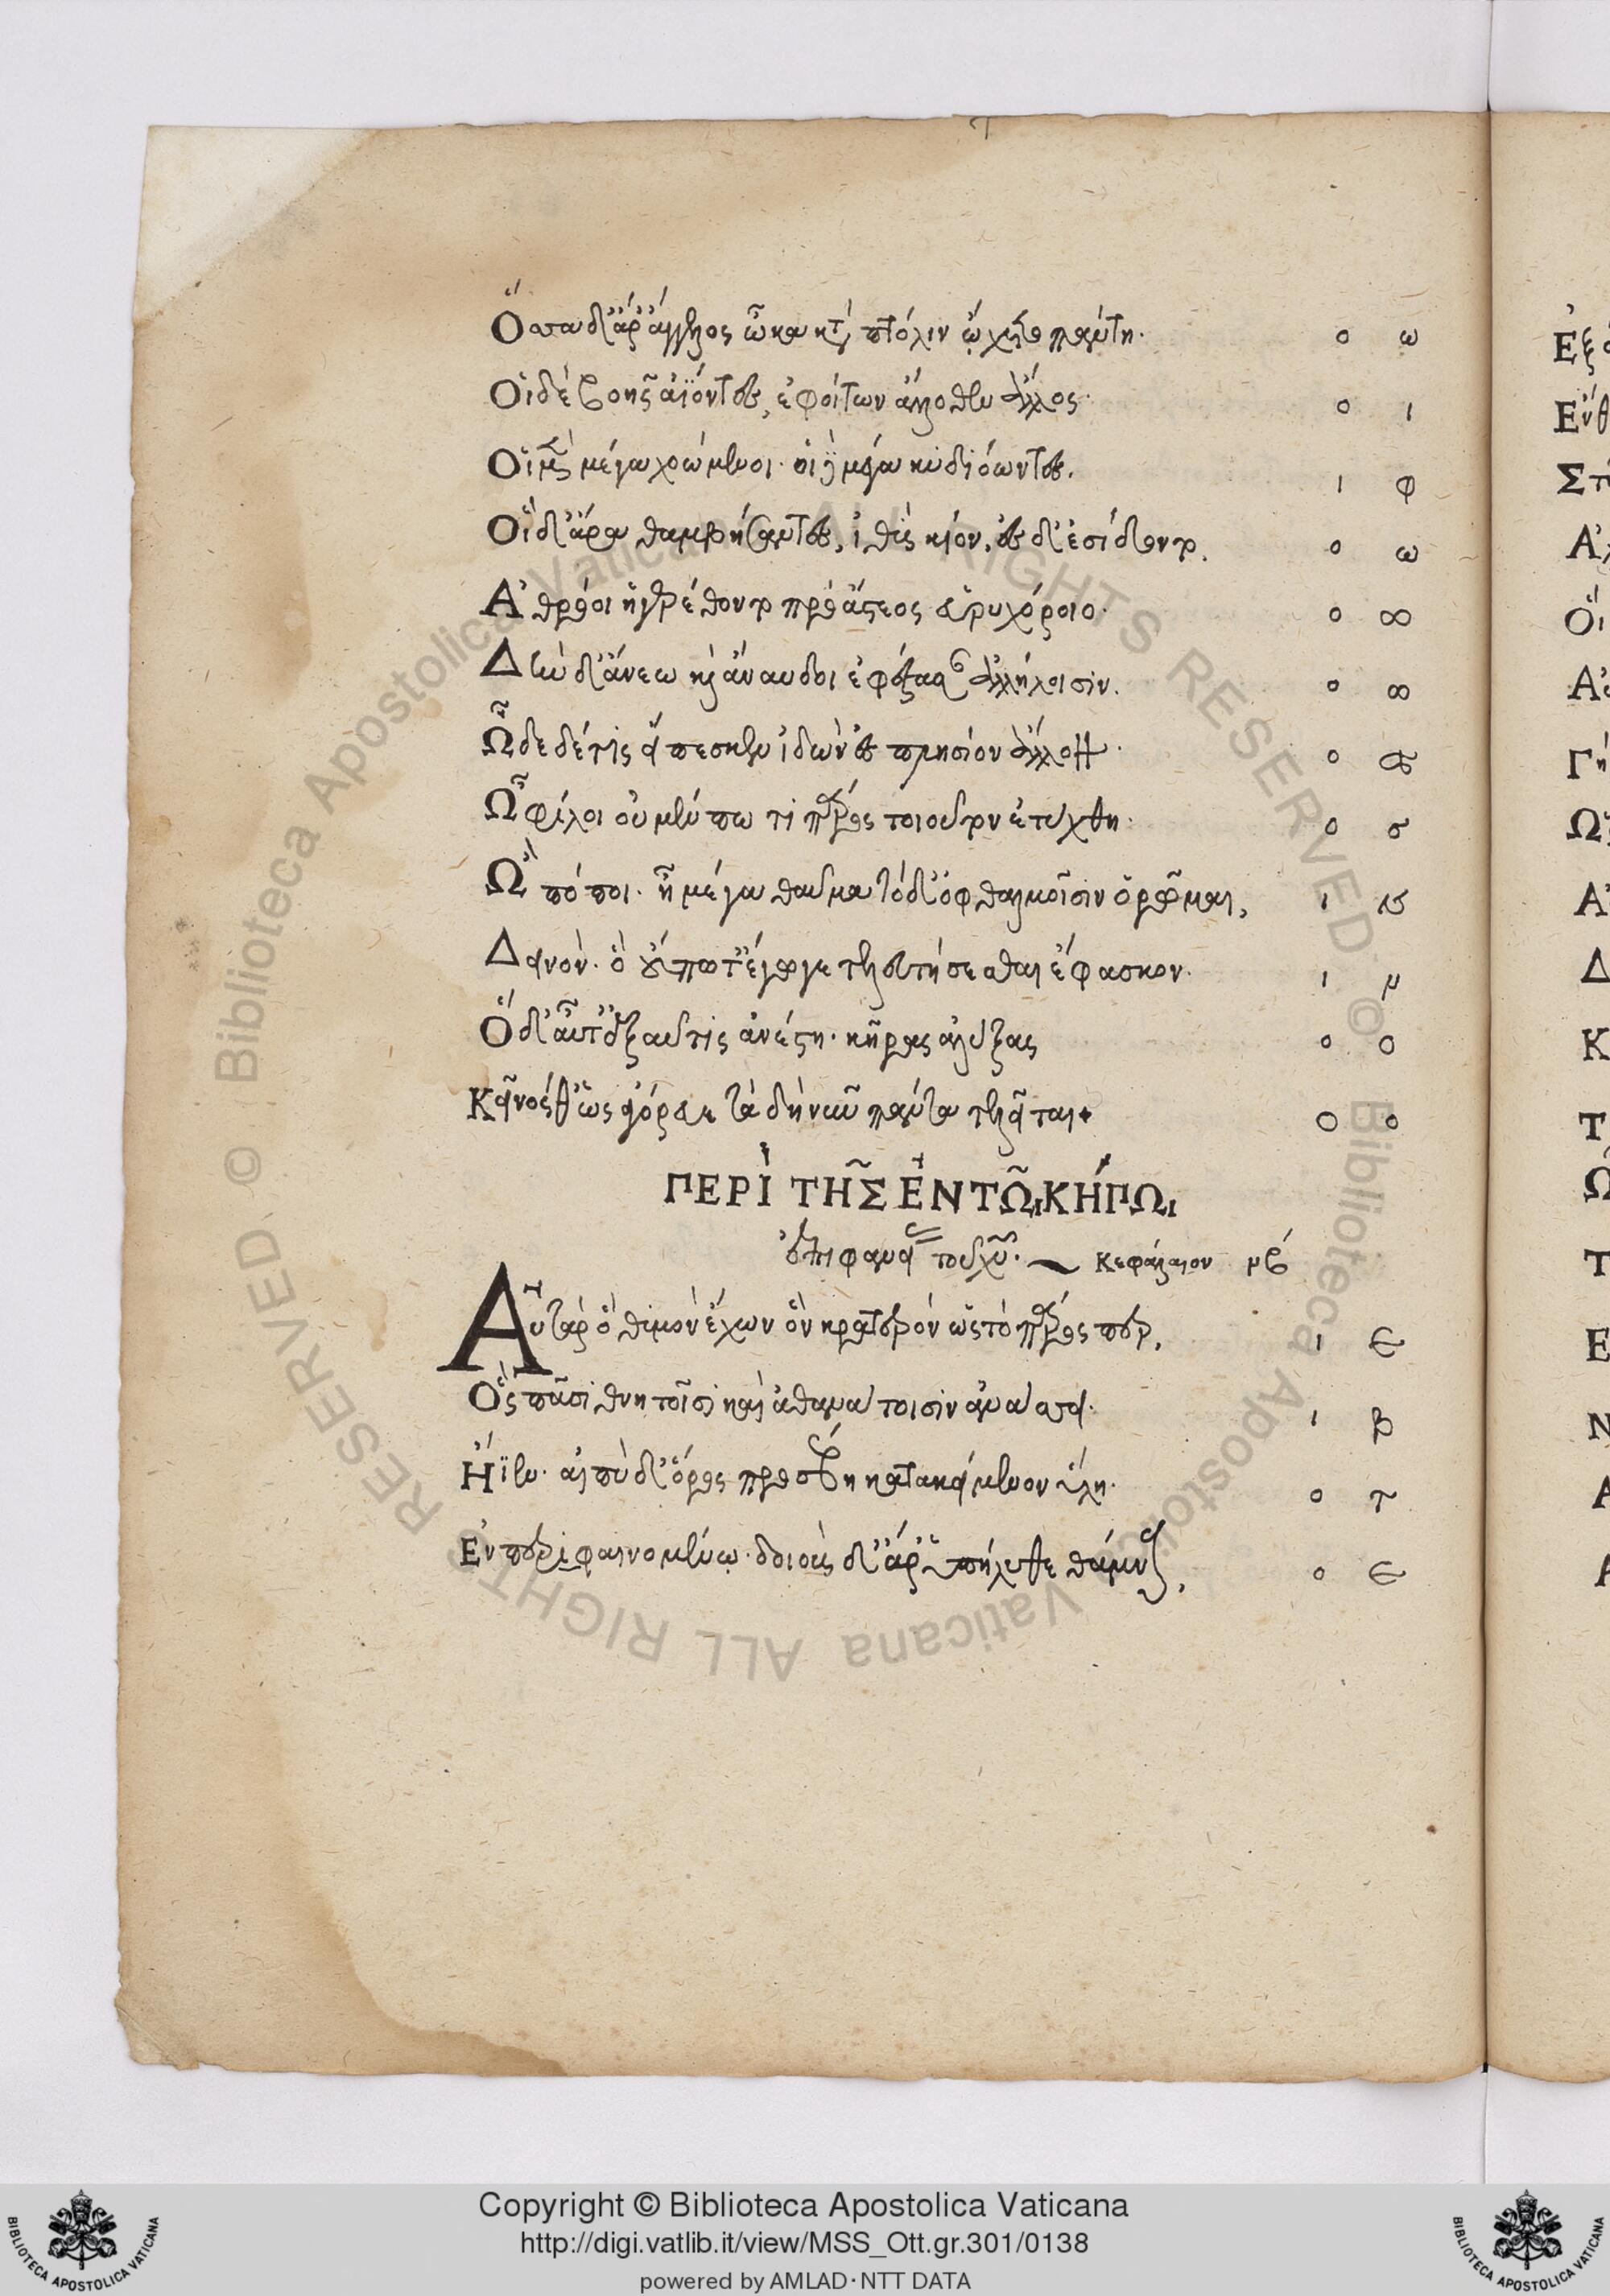 Ὄσσα δ' ἄρ' ἄγγελος ὦκα κατὰ πτόλιν ᾤχετο πάντη· ο ω
Οἱ δὲ βοῆς ἀΐοντες, ἐφοίτων ἄλλοθεν ἄλλος· ο ι
Οἱ μὲν μέγα χωόμενοι· οἱ δὲ μέγα κυδιόωντες. ι φ
Οἱ δ' ἄρα θαμβήσαντες, ἰθὺς κίον, ὡς δ' ἐσίδοντο. ο ω
Ἀθρόοι ἠγερέθοντο πρὸ ἄστεος εὐρυχόροιο· ο ∞
Δὴν δ' ἄνεω καὶ ἄναυδοι ἐφέστασαν ἀλλήλοισιν. ο ∞
Ὧδε δέ τις εἴπεσκεν ἰδὼν ἐς πλησίον ἄλλον· ο
Ὦ φίλοι οὐ μέν πώ τι πάρος τοιοῦτον ἐτύχθη· ο σ
Ὢ πόποι· ἦ μέγα θαῦμα τόδ' ὀφθαλμοῖσιν ὁρῶμαι, ι
Δεινόν· ὃ οὔποτ' ἔγωγε τελευτήσεσθαι ἔφασκον· ι μ
Ὅδ' αὖτ' ἐξαῦτις ἀνέστη· κῆρας ἀλύξας ο ο
Κεῖνός θ' ὣς ἀγόρευε τὰ δὴ νῦν πάντα τελεῖται+ ο ο
ΠΕΡῚ ΤΗ͂Σ ἘΝ ΤΩ͂Ι ΚΉΠΩΙ
ἐπιφανεί τοῦ χυ· Κεφάλαιον μβ
Αὐτὰρ ὁ θυμὸν ἔχων ὃν κρατερὸν ὡς τὸ πάρος περ, ι ε
Ὃς πᾶσι θνητοῖσι καὶ ἀθανάτοισιν ἀνάσσει· ι β
Ἤϊεν· αἰπὺ δ' ὄρος προσέβη καταειμένον ὕλη· ο τ
Ἐν περιφαινομένῳ· δοιοὺς δ' ἄρ' ὑπήλυθε θάμνους, ο ε
Copyright © Biblioteca Apostolica Vaticana
http://digi.vatlib.it/view/MSS_Ott.gr.301/0138
powered by AMLAD·NTT DATA